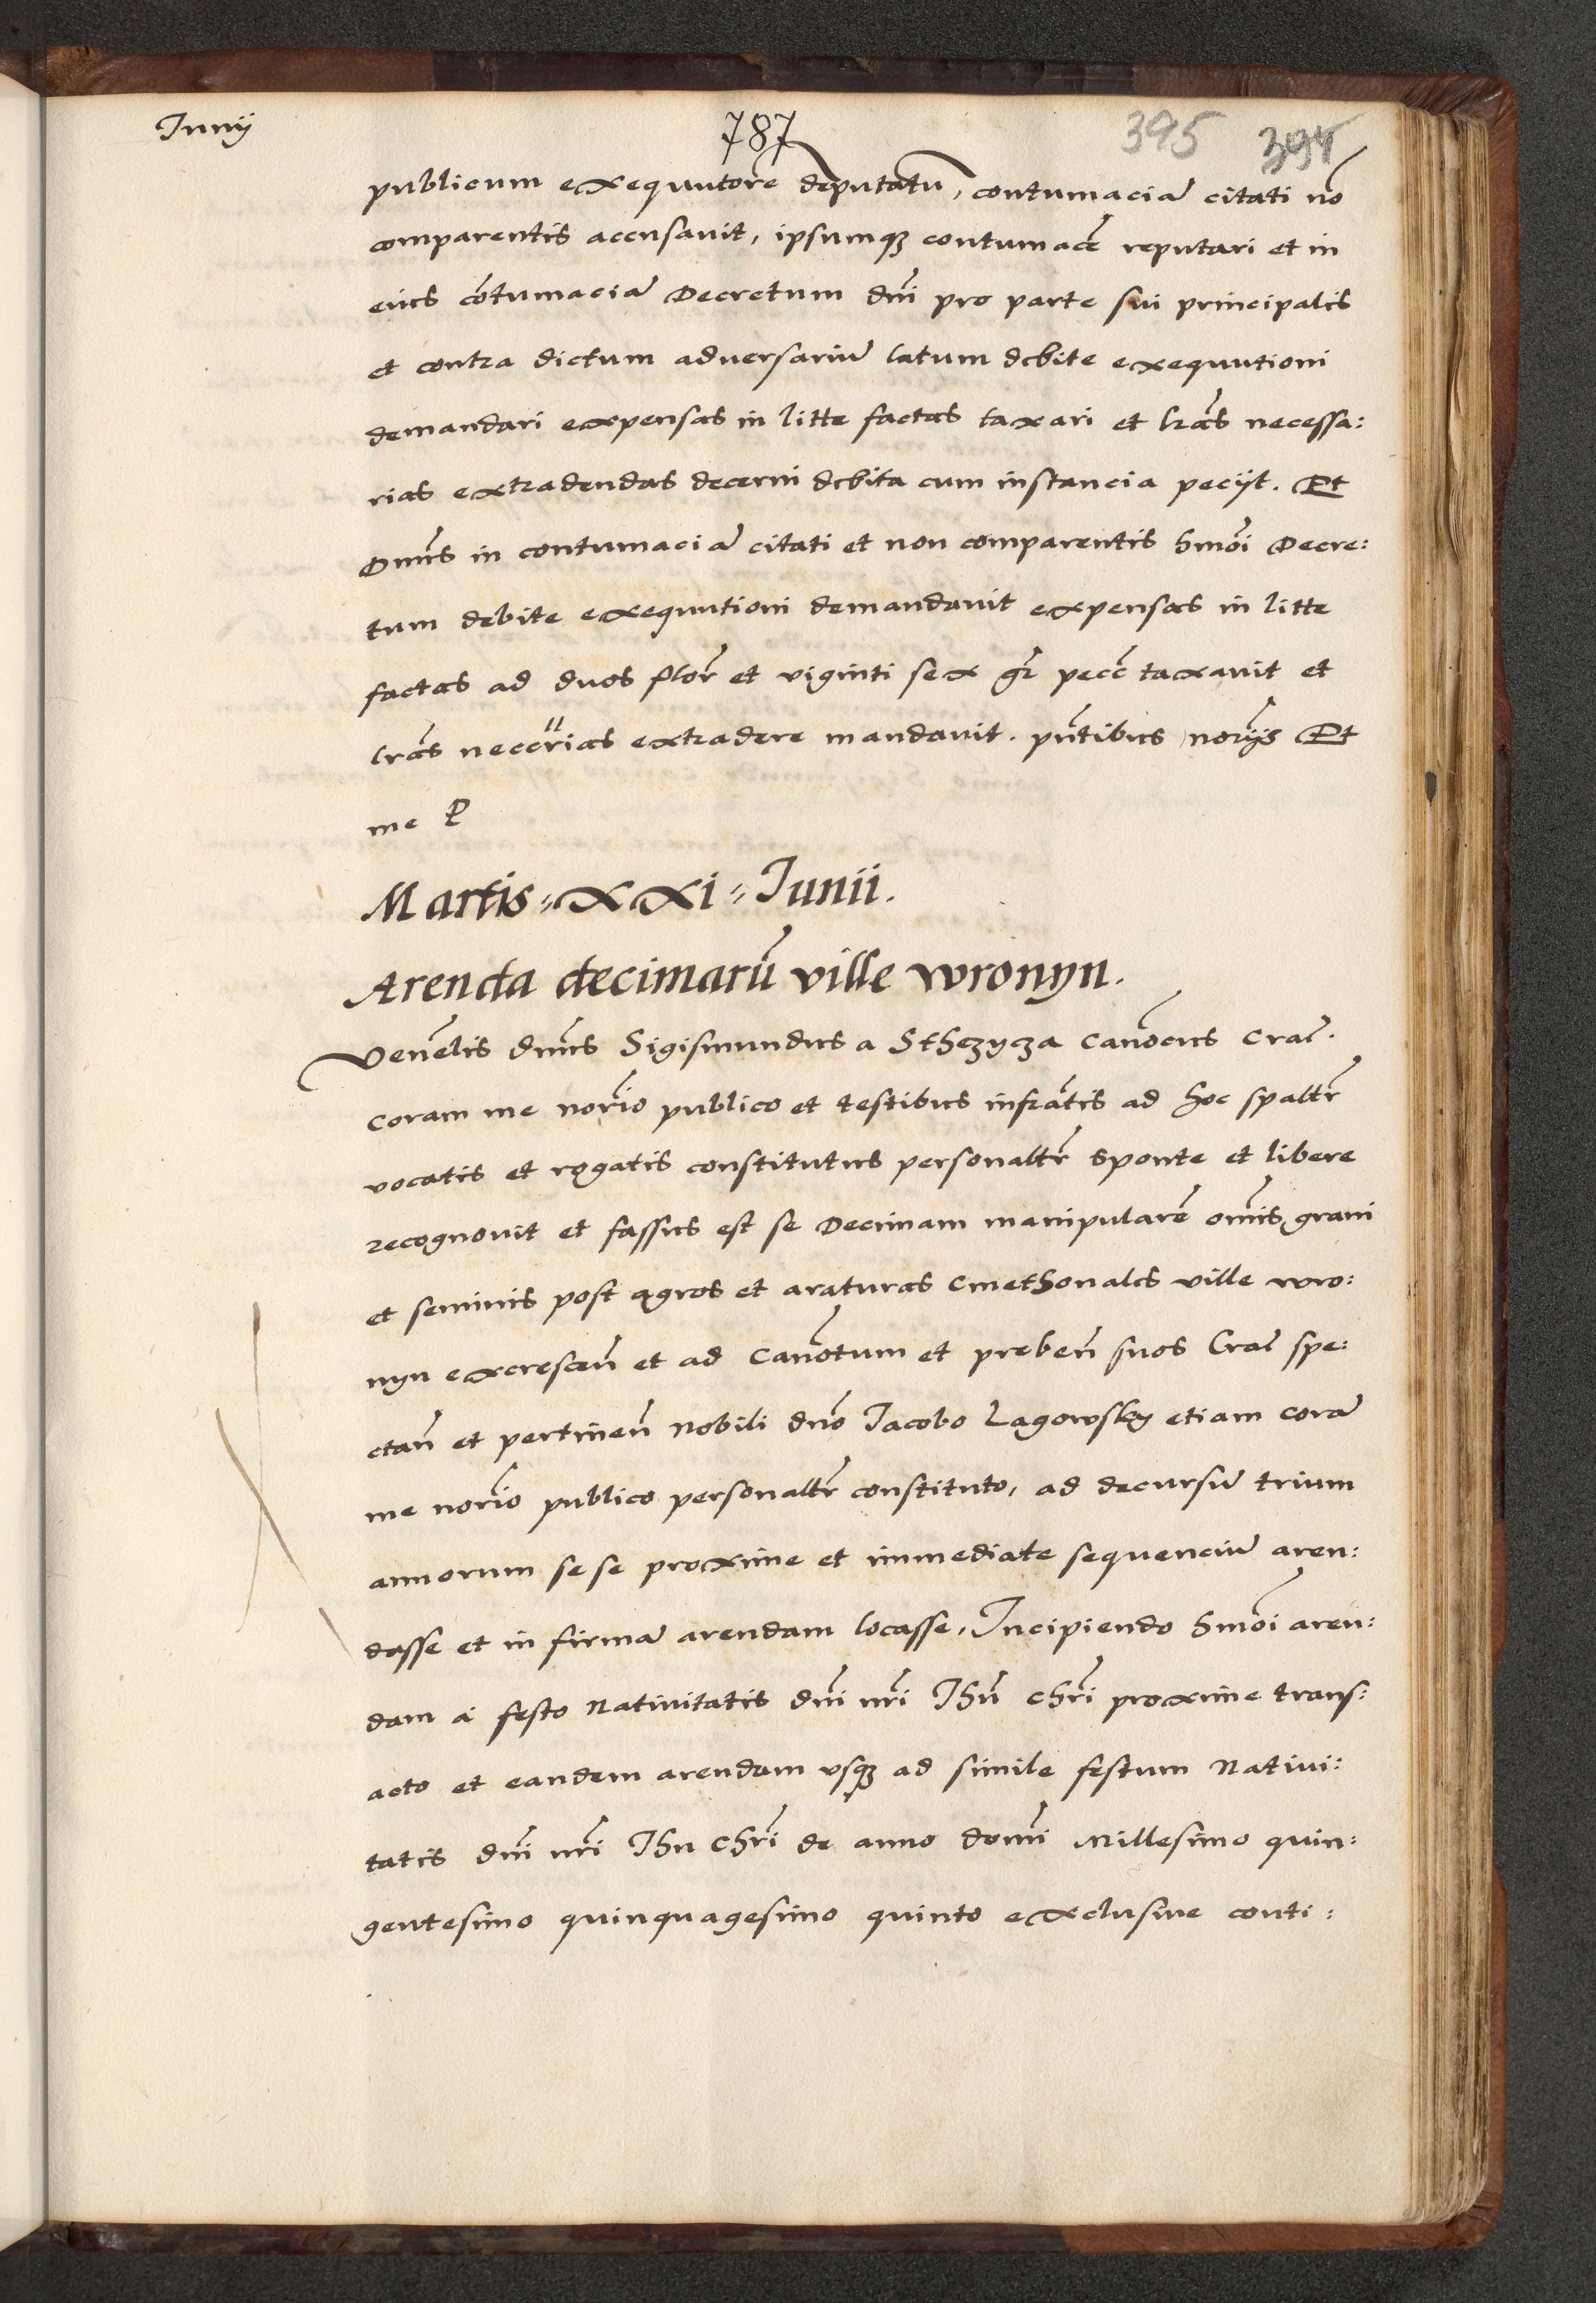 Junij
787
395 394
publicum exequutorē deputatū, contumaciā citati nō
comparentis accusavit, ipsumqꝫ contumacē reputari et in
eius cōtumaciā Decretum dn̄i pro parte sui principalis
et contra dictum adversariū latum debite exequutioni
demandari expensas in litte factas taxari et lrās necessa:
rias extradendas decerni debita cum instancia peciit. Et
Dn̄us in contumaciā citati et non comparentis hmōi Decre:
tum debite exequutioni demandavit expensas in litte
factas ad duos flor̄ et viginti sex gr̄ pecc̄ taxavit et
lrās neccr̄ias extradere mandavit. pn̄tibus nor̄ijs Et
me P
Martis = xxi = Junii.
Arenda decimarū ville wronyn.
Venēlis dn̄us Sigismundus a Sthezycza Canōcus Crac̄.
coram me nor̄io publico et testibus infrātis ad hoc spaltr̄
vocatis et rogatis constitutus personaltr̄ sponte et libere
recognovit et fassus est se Decimam manipularē om̄is grani
et seminis post agros et araturas Cmethonales ville wro:
nyn excrescen̄ et ad Canōtum et preben̄ suos Crac̄ spe:
ctan̄ et pertinen̄ Nobili dn̄o Jacobo Lagowsky etiam corā
me nor̄io publico personaltr̄ constituto, ad decursū trium
annorum se se proxime et immediate sequenciū aren:
dasse et in firmā arendam locasse, Incipiendo hmōi aren:
dam a festo Nativitatis dn̄i nr̄i Jhū chr̄i proxime trans:
acto et eandem arendam vsqꝫ ad simile festum Nativi:
tatis dn̄i nr̄i Jhu Chr̄i de anno domī Millesimo quin:
gentesimo quinquagesimo quinto exclusive conti: